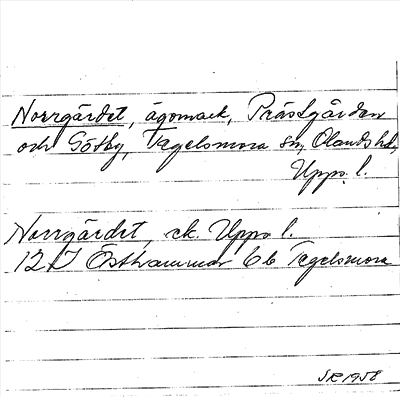 Norrgärdet, ägomark, Prästgården
och Göksby, Tegelsmora sn, Olands hd,
Upps. l.
Norrgärdet, ek. Upps l.
12 I Östhammar 6 b Tegelsmora
SR 1958